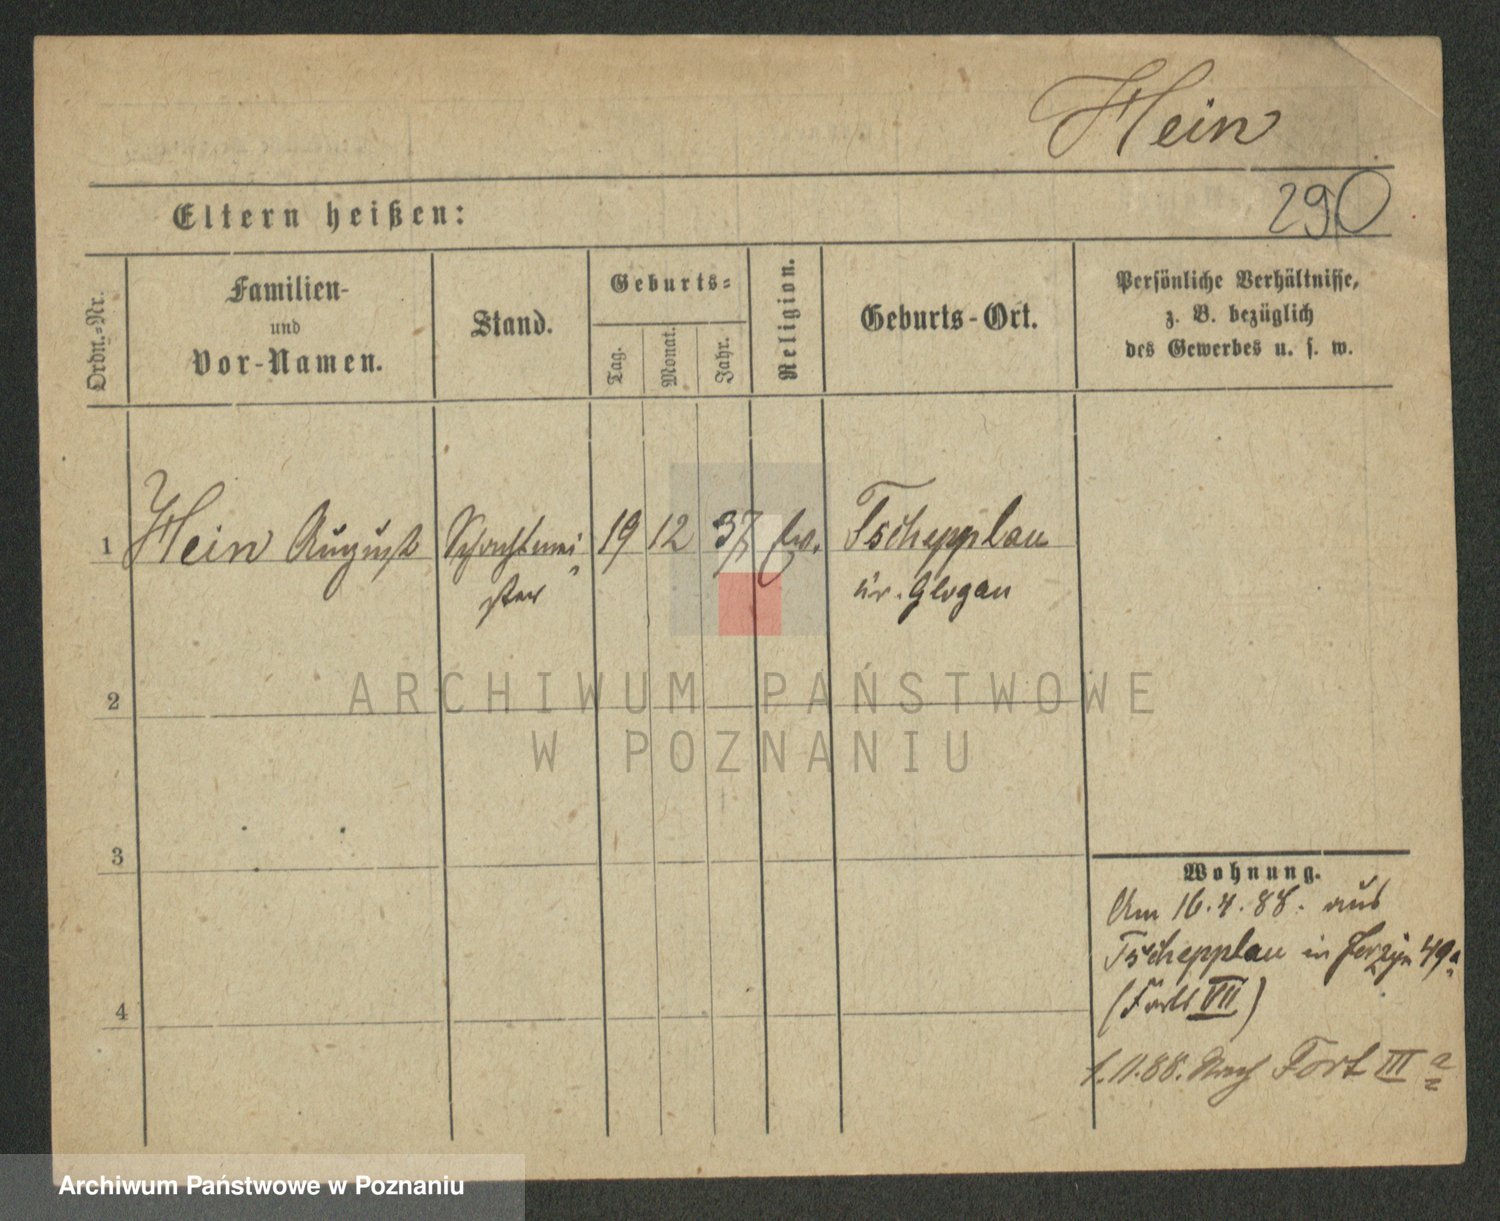 Hein
290
Eltern heißen:
Ordn.-Nr.
Familien-
und
Vor-Namen.
Stand.
Geburts-
Tag.
Monat.
Jahr.
Religion.
Geburts-Ort.
Persönliche Verhältnisse,
z. B. bezüglich
des Gewerbes u. s. w.
1 Hein August Schachtmei- 19 12 37 ev. Tscheppлau
ster Kr. Glogau
2
3
4
Wohnung.
Am 16.4.88. aus
Tschepplau in Jerzyn 49a
(Fort VII)
1.11.88. Nach Fort III a
ARCHIWUM PAŃSTWOWE
W POZNANIU
Archiwum Państwowe w Poznaniu